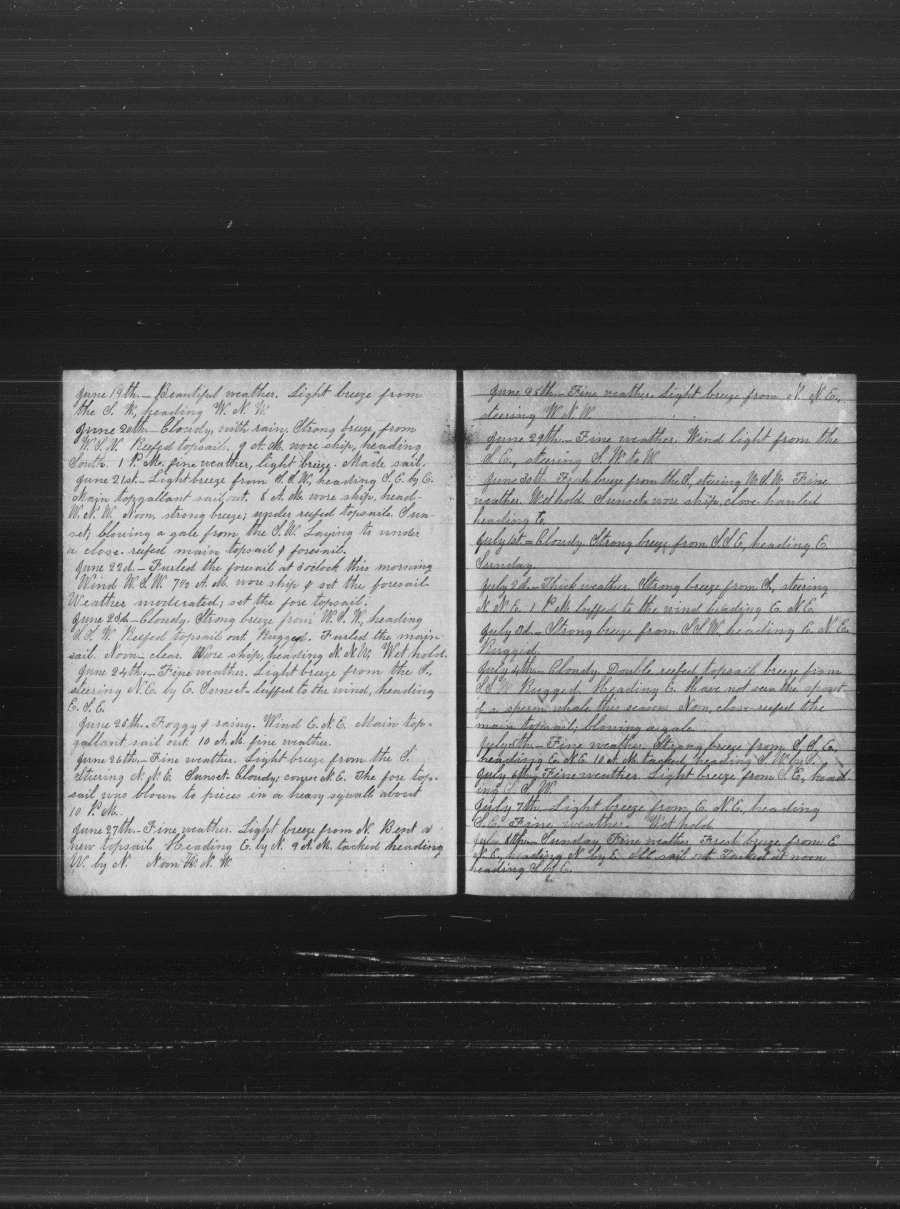 June 19th.— Beautiful weather. Light breeze from
the S. W. heading W. N. W.
June 20th.— Cloudy, with rain. Strong breeze, from
W. S. W. Reefed topsail. 9 A. M. wore ship, heading
South. 1 P. M. fine weather, light breeze. Made sail.
June 21st.— Light breeze from S. S. W., heading S. E. by E.
Main topgallant sail out. 8 A. M. wore ship, head-
W. N. W. Noon, strong breeze; under reefed topsails. Sun-
set; blowing a gale from the S. W. Laying to under
a close-reefed main topsail & foresail.
June 22d.— Furled the foresail at 3 o'clock this morning
Wind W. S. W. 7 1/2 A. M. wore ship & set the foresail.
Weather moderated; set the fore topsail.
June 23d.— Cloudy. Strong breeze from W. S. W., heading
S. S. W. Reefed topsail out. Rugged. Furled the main-
sail. Noon— clear. Wore ship, heading N. N. W. Wet hold.
June 24th.— Fine weather. Light breeze from the S.,
steering N. E. by E. Sunset— luffed to the wind, heading
E. S. E.
June 25th.— Foggy & rainy. Wind E. N. E. Main top-
gallant sail out. 10 A. M. fine weather.
June 26th.— Fine weather. Light breeze from the S.
Steering N. N. E. Sunset. Cloudy; course N. E. The fore top-
sail was blown to pieces in a heavy squall about
10 P. M.
June 27th.— Fine weather. Light breeze from N. Bent a
new topsail. Heading E. by N. 9 A. M. tacked heading
W. by N. Noon W. N. W.
June 28th.— Fine weather. Light breeze from N. N. E.,
steering W. N. W.
June 29th.— Fine weather. Wind light from the
S. E., steering S. W. to W.
June 30th.— Fresh breeze from the S., steering W. S. W. Fine
weather. Wet hold. Sunset, wore ship, close hauled
heading E.
July 1st.— Cloudy. Strong breeze from S. S. E., heading E.
Sunday.
July 2d.— Thick weather. Strong breeze from S., steering
N. N. E. 1 P. M. luffed to the wind heading E. N. E.
July 3d.— Strong breeze from S. S. W., heading E. N. E.
Rugged.
July 4th.— Cloudy. Double reefed topsail breeze from
S. S. W. Rugged. Heading E. Have not seen the spout
of a sperm whale this season. Noon, close-reefed the
main topsail; blowing a gale.
July 5th.— Fine weather. Strong breeze from S. S. E.,
heading E. N. E. 10 A. M. tacked, heading S. W. by S.
July 6th.— Fine weather. Light breeze from S. E., head-
ing S. S. W.
July 7th.— Light breeze from E. N. E., heading
S. E. Fine weather. Wet hold.
July 8th.— Sunday. Fine weather. Fresh breeze from E.
S. E., heading N. by E. All sail out. Tacked at noon
heading S. by E.